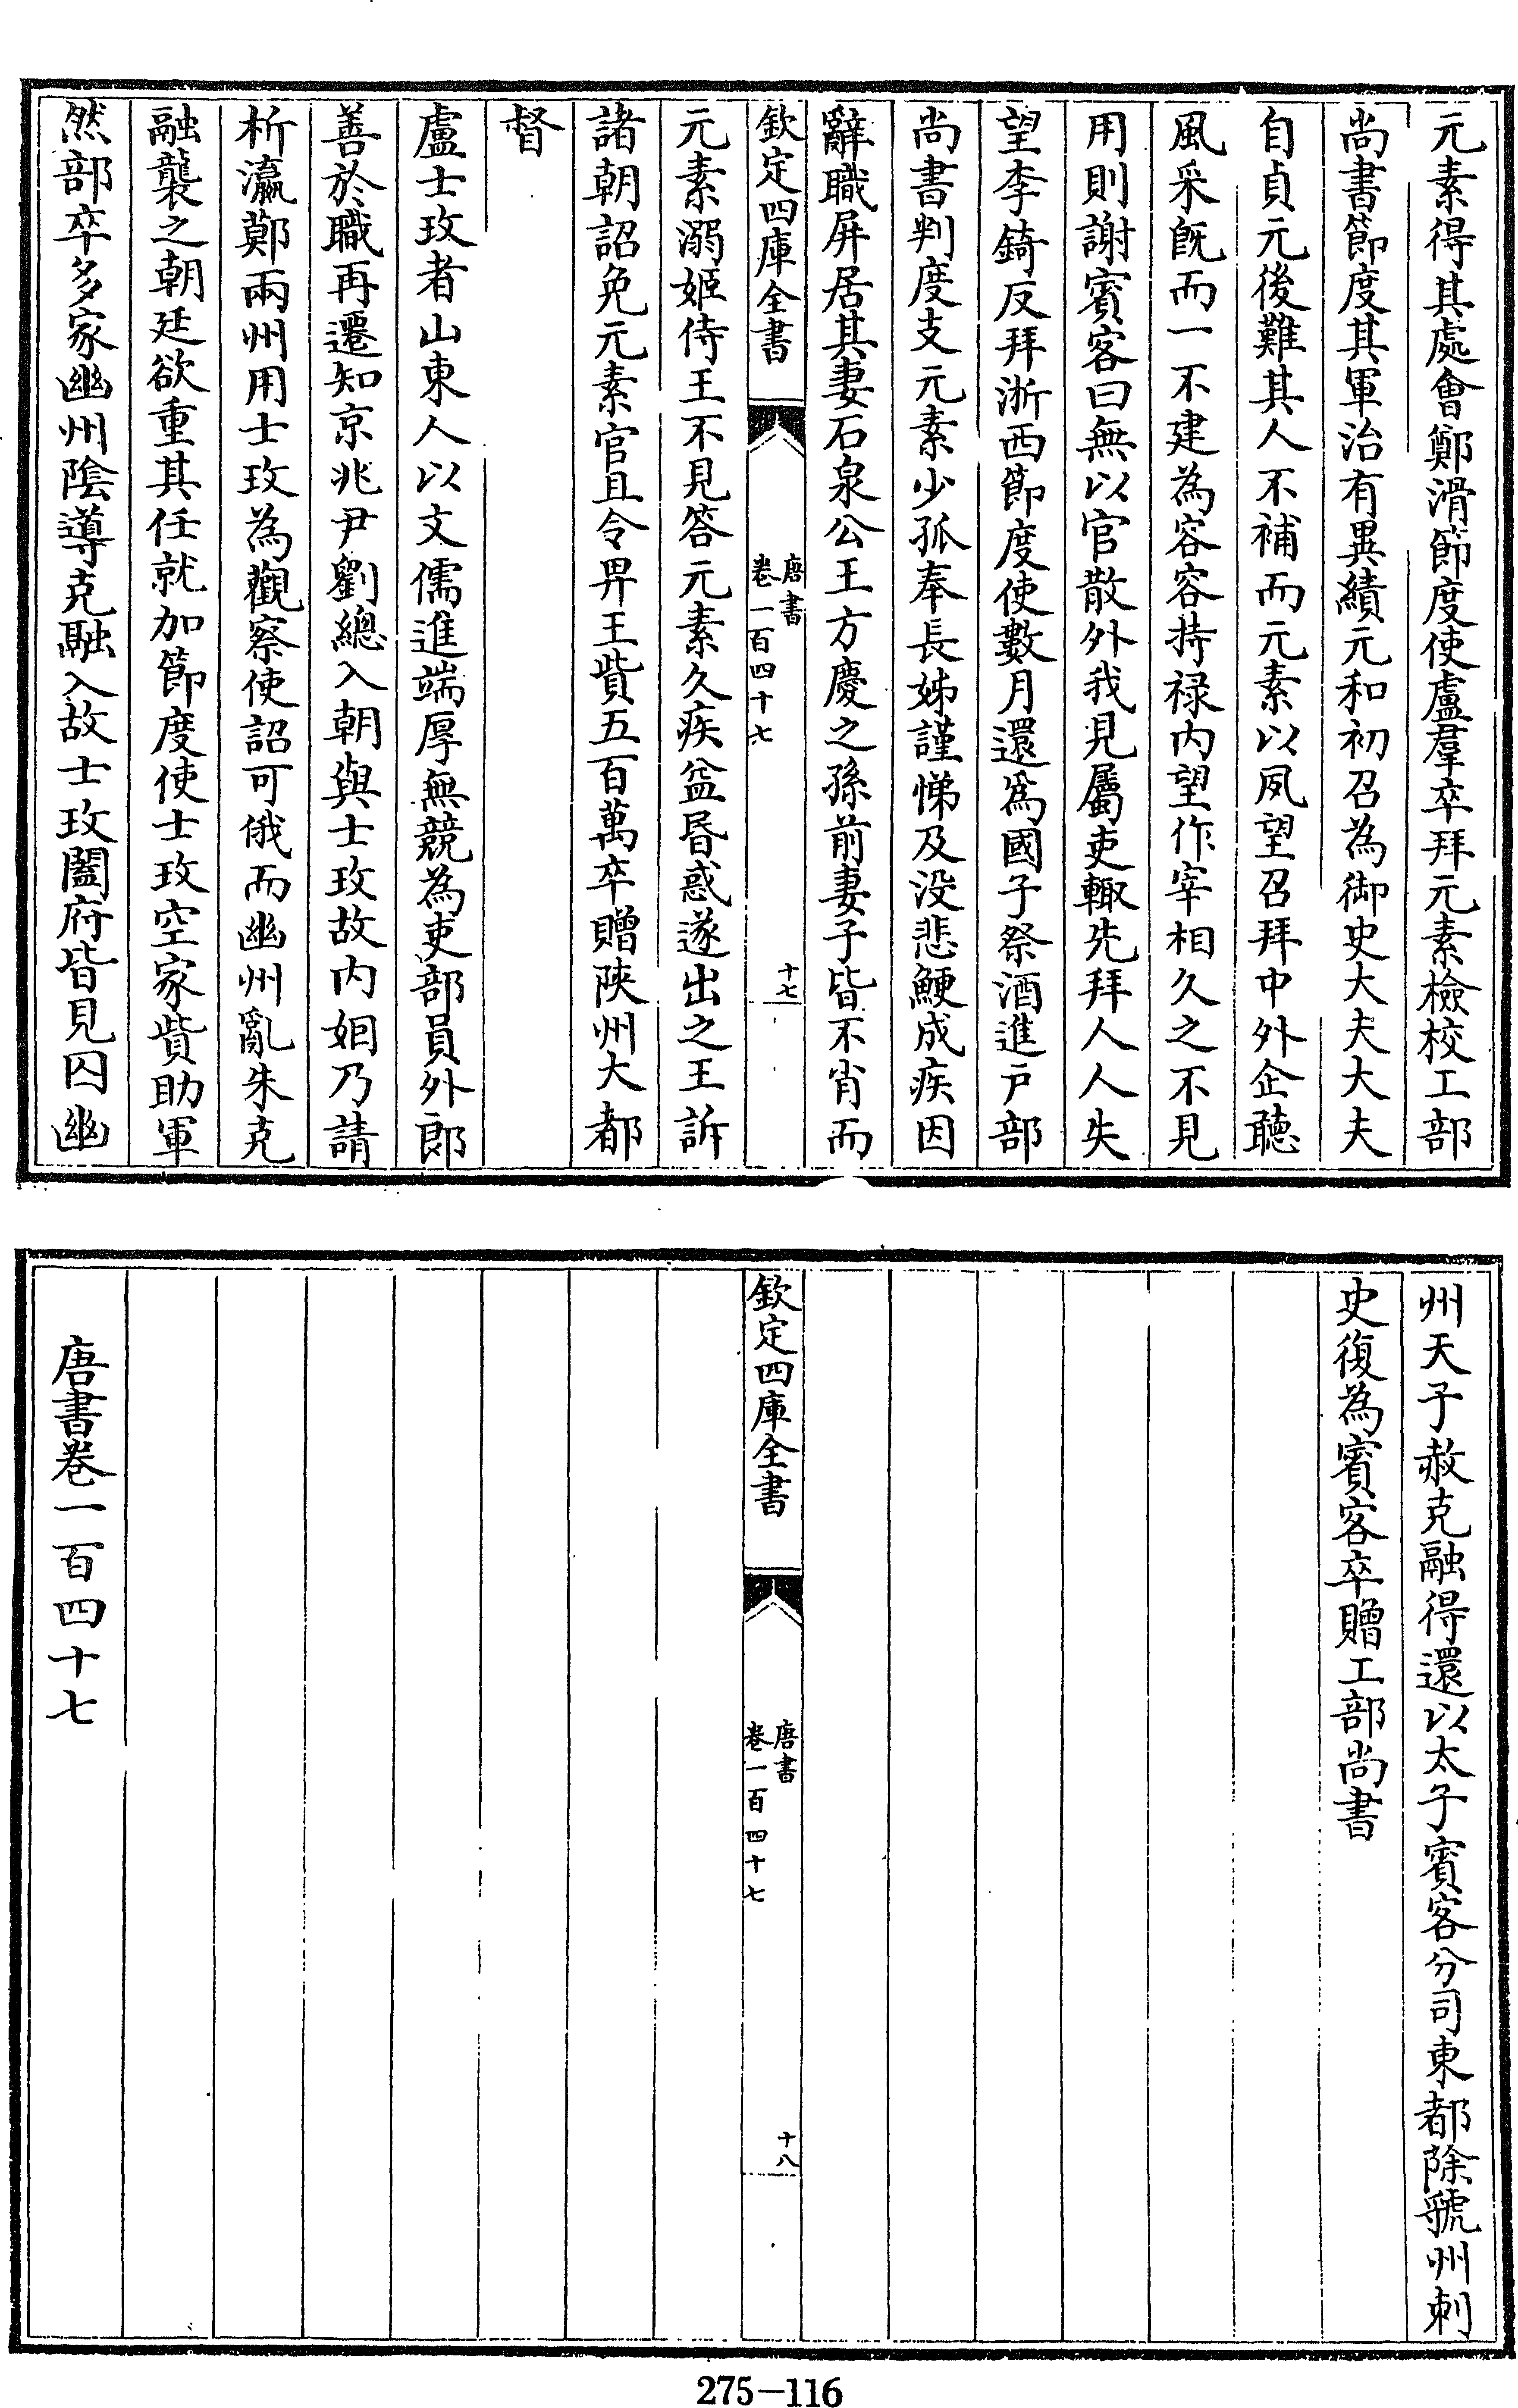 元素得其處會鄭滑節度使盧羣卒拜元素檢校工部
尚書節度其軍治有異績元和初召為御史大夫大夫
自貞元後難其人不補而元素以夙望召拜中外企聽
風采旣而一不建為容容持禄内望作宰相久之不見
用則謝賓客曰無以官散外我見屬吏輙先拜人人失
望李錡反拜浙西節度使數月還為國子祭酒進戶部
尚書判度支元素少孤奉長姊謹悌及没悲鯁成疾因
辭職屏居其妻石泉公王方慶之孫前妻子皆不肖而
欽定四庫全書
唐書
卷一百四十七
十七
元素溺姬侍王不見答元素久疾益昏惑遂出之王訴
諸朝詔免元素官且令畀王貲五百萬卒贈陝州大都
督
盧士玫者山東人以文儒進端厚無競為吏部員外郎
善於職再遷知京兆尹劉總入朝與士玫故内姻乃請
析瀛鄭兩州用士玫為觀察使詔可俄而幽州亂朱克
融襲之朝廷欲重其任就加節度使士玫空家貲助軍
然部卒多家幽州陰導克融入故士玫闔府皆見囚幽
州天子赦克融得還以太子賓客分司東都除虢州刺
史復為賓客卒贈工部尚書
欽定四庫全書
唐書
卷一百四十七
十八
唐書卷一百四十七
275-116